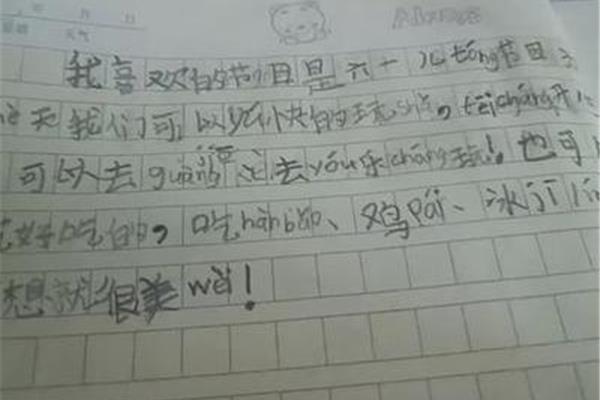 年 月 日
天气
Always
我喜欢的节日是六一儿tóng节日
天我们可以好好快的玩shuǎ,tèi cháng开
可以去guàng 去yóu乐cháng玩!也可
好吃的,吃hàn bǎo、鸡pái、冰jī lín
想就很美wèi!